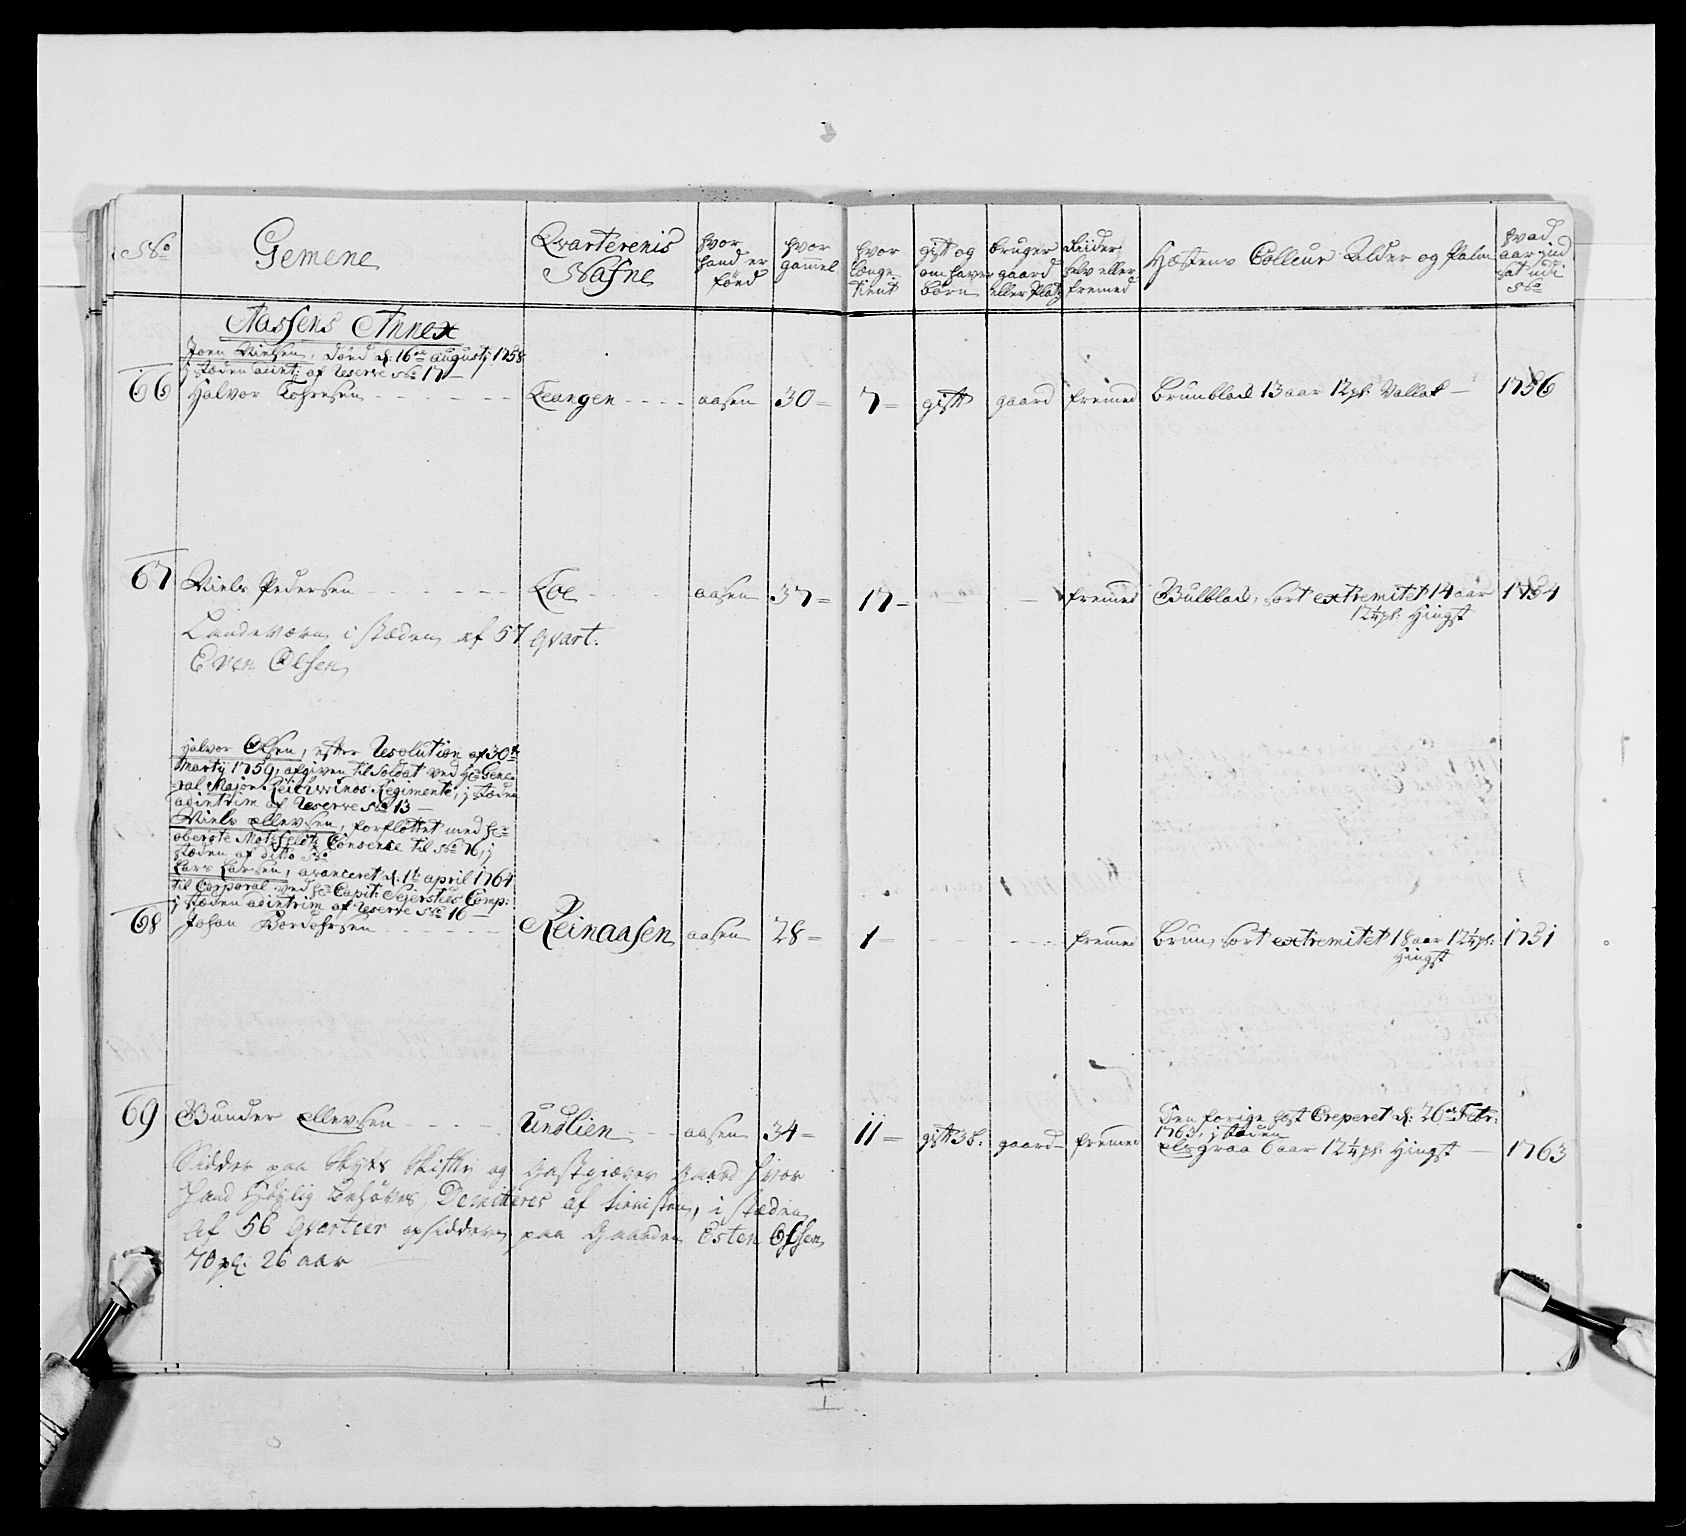 No
Gemene
Qvarterenis
Nafne
hvor
hand er
föed
hvor
gammel
hvor
længe
tient
gift og
om haver
börn
bruger
gaard
eller Platz
Riider
selv eller
fremed
Hæstens Colleur Alder og Palm
hvad
aar ind
sat udi
No
Aassens Annex
Joen Nielsen, döed d: 16de augustj 1758
j stæden adint: af Reserve No 17
66 Halvor Tohresen Leangen aasen 30 7 gift gaard fremed Brunblad 13 aar 12 pl: Vallak 1756
67 Niels Pedersen Loe aasen 37 17 fremed Bulblad, sort extremitet 14 aar 1754
12¼ pl: Hingst
Landeværn i stæden af 57 qvart.
Even Olsen
Halvor Olsen, efter Resolution af 30te
Martij 1759, afgiven til Soldat ved Hr Gene-
ral Major Regimente, j stæden
adintrim af Reserve No 13
Niels Ellevsen, forflöttet med Hr
oberste Consence til No 76, j
stæden af ditto No
Lars Larsen, avanceret d. 1te april 1764
til Corporal ved Hr Capit: Sejersteds Comp:
j stæden adintrim af Reserve No 16
68 Johan Bordohrsen Reinaasen aasen 28 1 fremed Brun, sort extremitet 18 aar 12¼ pl: 1751
Hingst
69 Gunder Ellevsen Undlien aasen 34 11 gift 3 b: gaard fremed
Den forige hæst Creperet d: 26de Febr:
1763, j stæden
graa 6 aar 12¼ pl: Hingst 1763
Sidder paa Skyds Skifte og Gastgiæver Gaard hvor
hand höylig behöves, Demitteres af tienisten, i stæden
af 56 Qvarteer opsidderen paa Gaarden Esten Olsen
70 pl: 26 aar